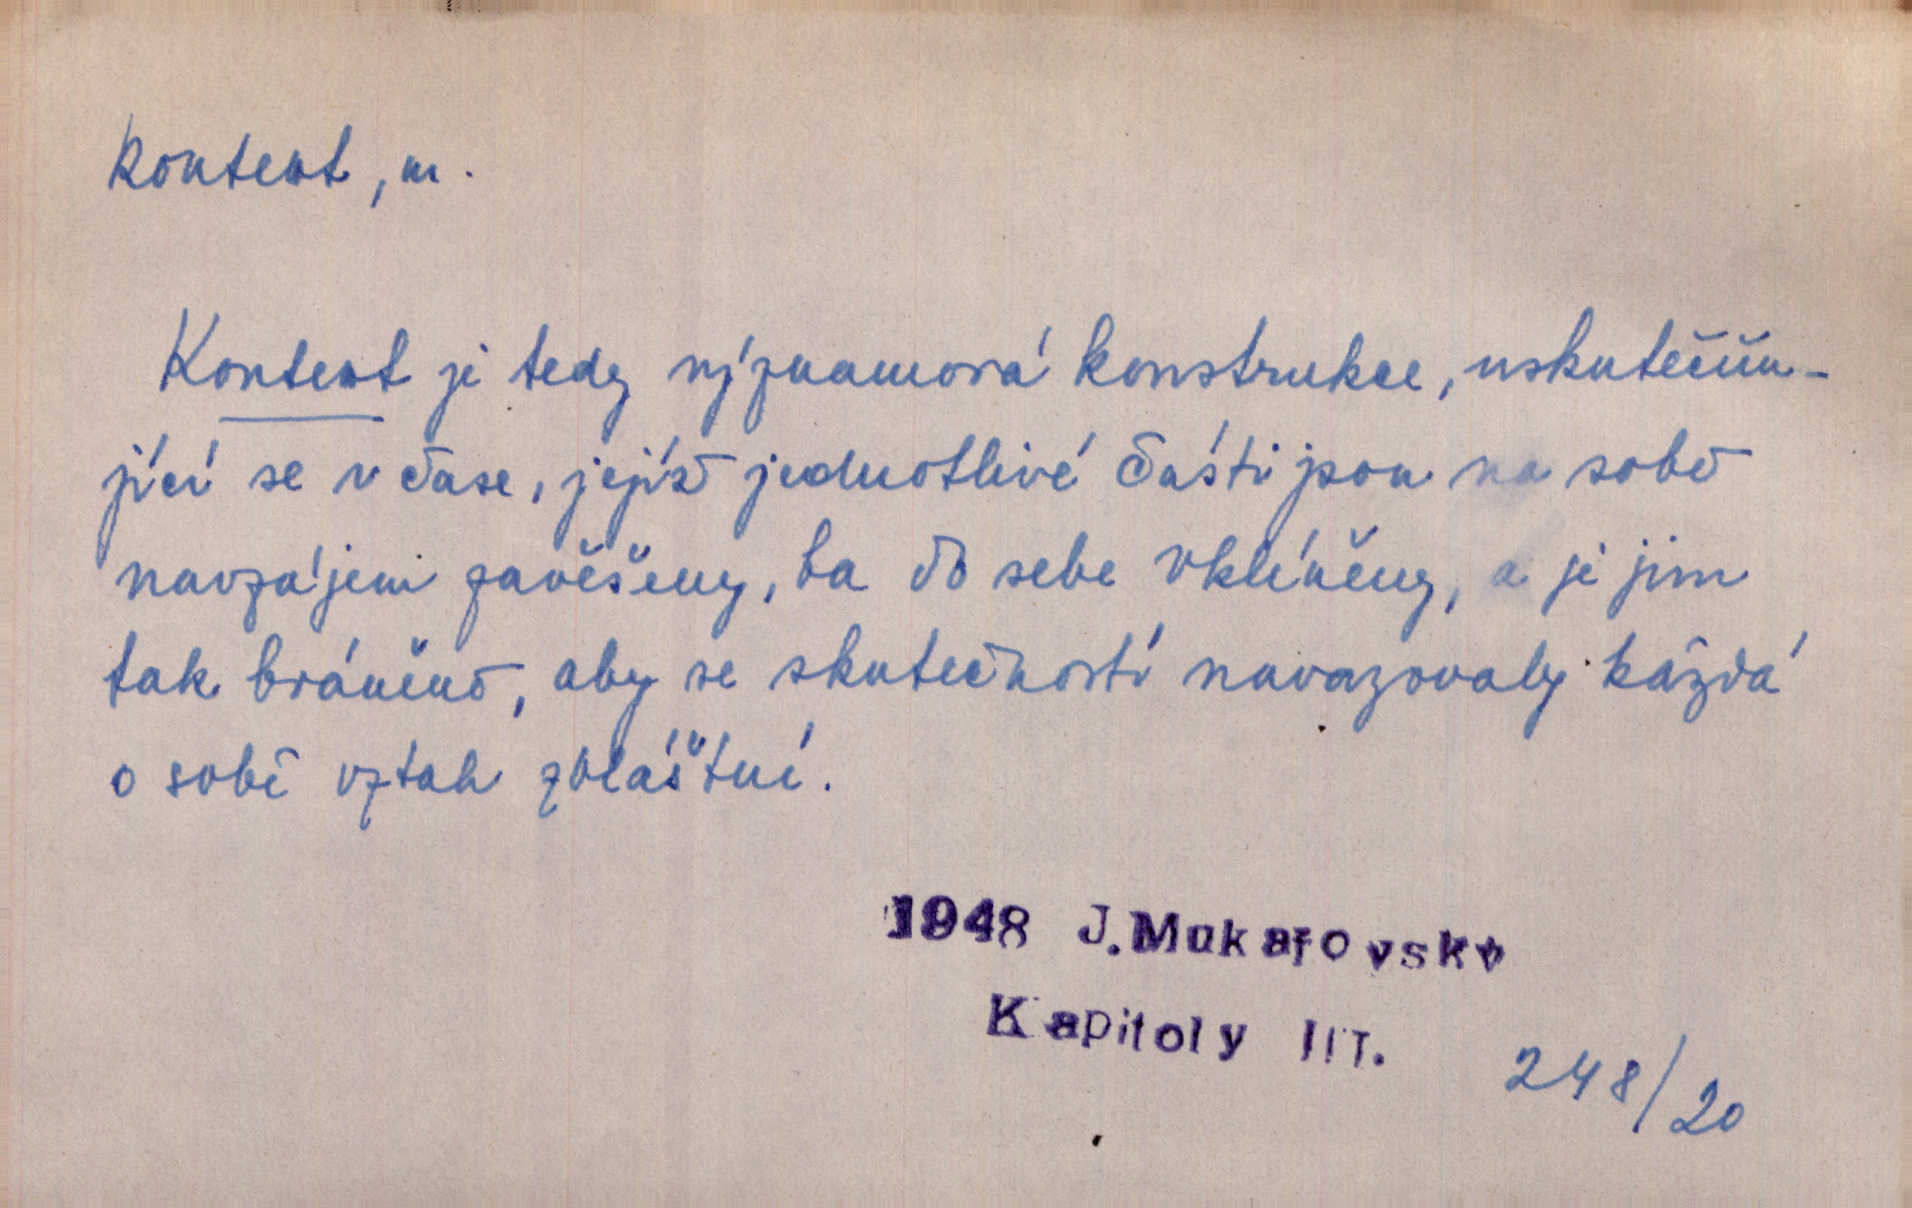 kontext, m.
Kontext je tedy významová konstrukce, uskutečňu-
jící se v čase, jejíž jednotlivé části jsou na sobě
navzájem zavěšeny, ba do sebe vklíněny, a je jim
tak bráněno, aby se skutečností navazovaly každá
o sobě vztah zvláštní.
1948 J. Mukařovský
Kapitoly III.
248/20